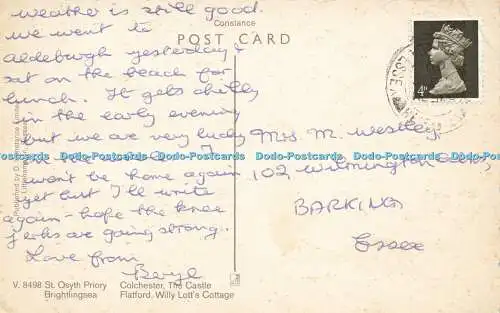 Constance
POST CARD
weather is still good.
we went to
Aldeburgh yesterday &
sat on the beach for
lunch. It gets chilly
in the early evening
but we are very lucky
I
won't be home again
yet but I'll write
again - hope the knee
jerks are going strong.
Love from
Beryl
Mrs. M. Westley,
102 Wilmington Gdns,
BARKING
Essex
4D
Published by D.
V. 8498 St. Osyth Priory
Brightlingsea
Colchester, The Castle
Flatford, Willy Lott's Cottage
Dodo-Postcards Dodo-Postcards Dodo-Postcards Dodo-Postcards Dodo-Postcards Dodo-Postcards